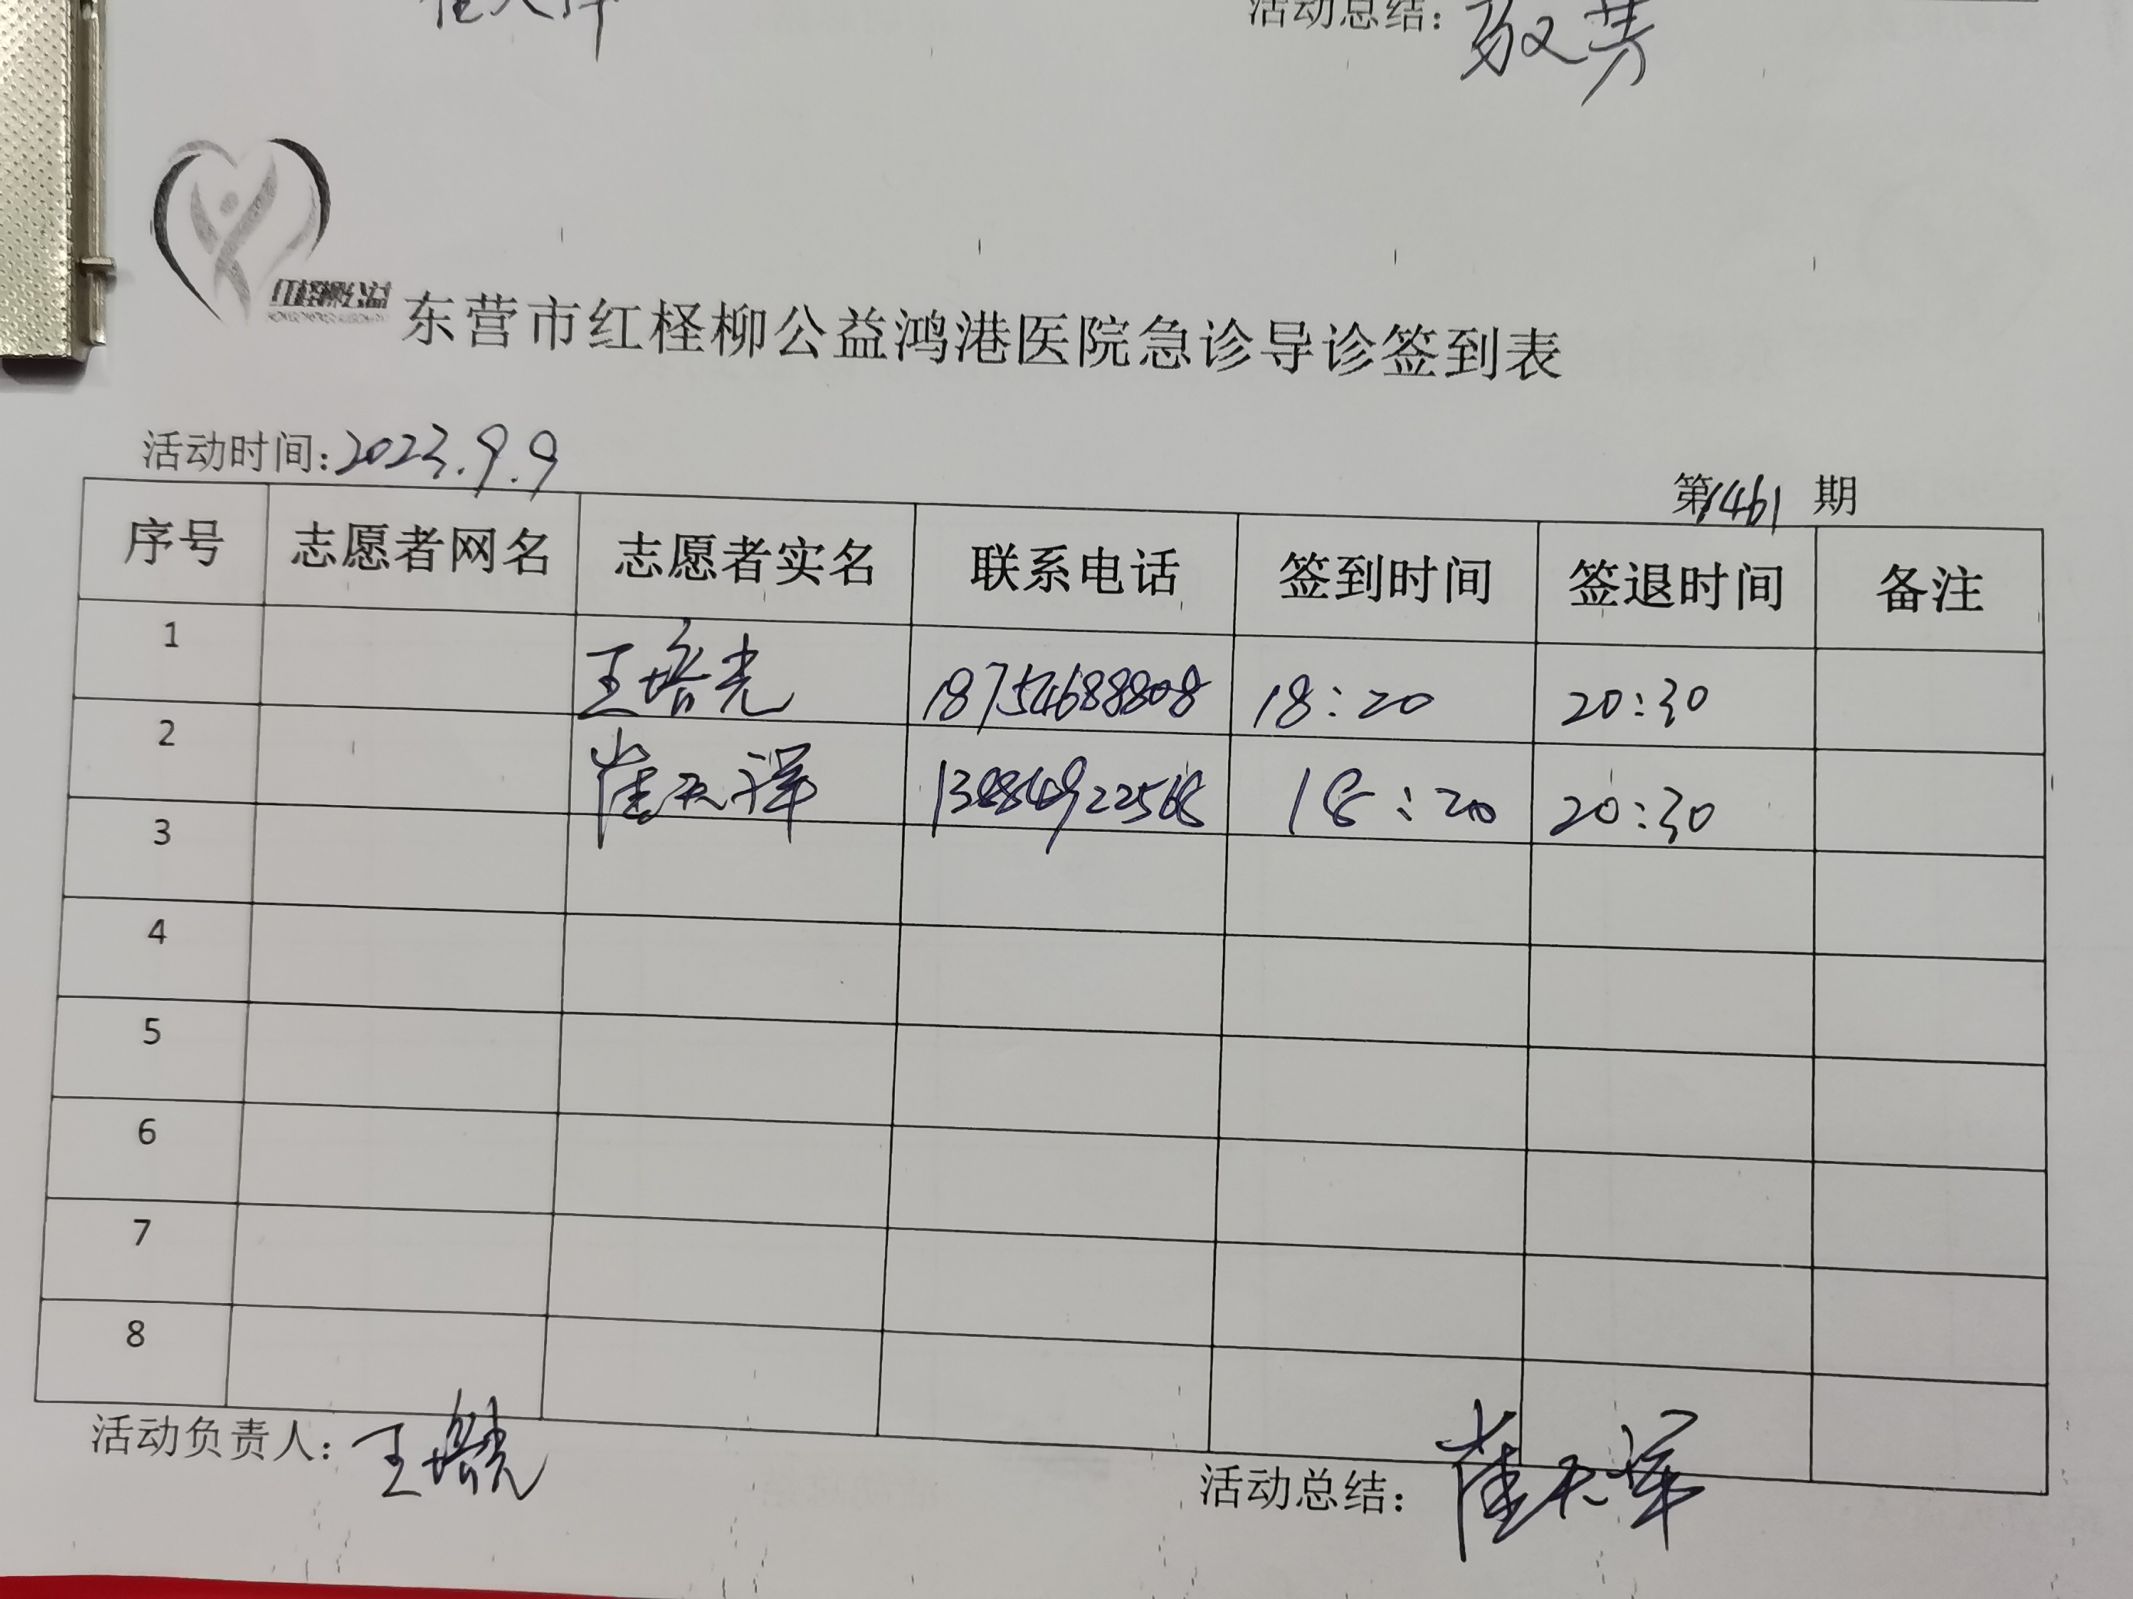 活动总结：敬文芳
红柽柳公益
东营市红柽柳公益鸿港医院急诊导诊签到表
活动时间：2023.9.9
第1461期
序号 志愿者网名 志愿者实名 联系电话 签到时间 签退时间 备注
1 王培光 18754688808 18:20 20:30
2 崔天泽 18:20 20:30
3
4
5
6
7
8
活动负责人：王培光
活动总结：崔天泽